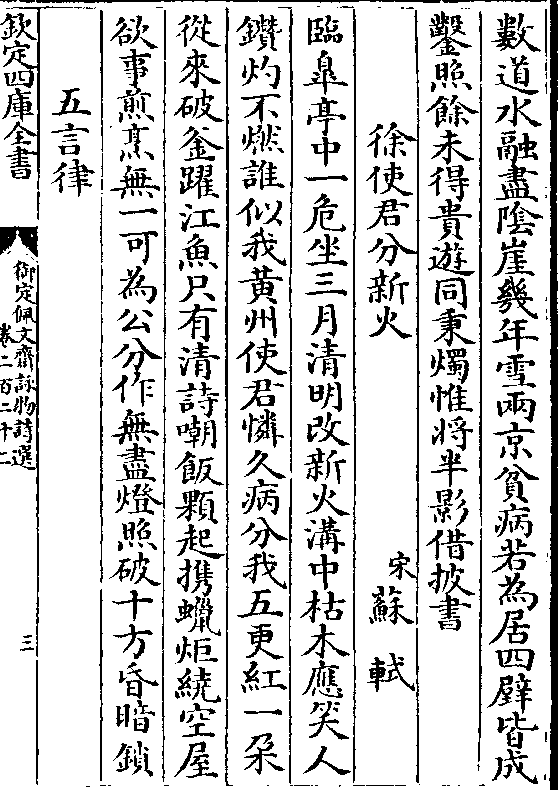 數道水融盡陰崖幾年雪兩京貧病若為居四壁皆成
鑿照餘未得貴遊同秉燭惟將半影借披書
徐使君分新火
宋蘇軾
臨臯亭中一危坐三月清明改新火溝中枯木應笑人
鑚灼不燃誰似我黄州使君憐久病分我五更紅一朶
從來破釜躍江魚只有清詩嘲飯顆起携蠟炬繞空屋
欲事煎烹無一可為公分作無盡燈照破十方昏暗鎖
五言律
欽定四庫全書
御定佩文齋詠物詩選
卷二百二十二
三